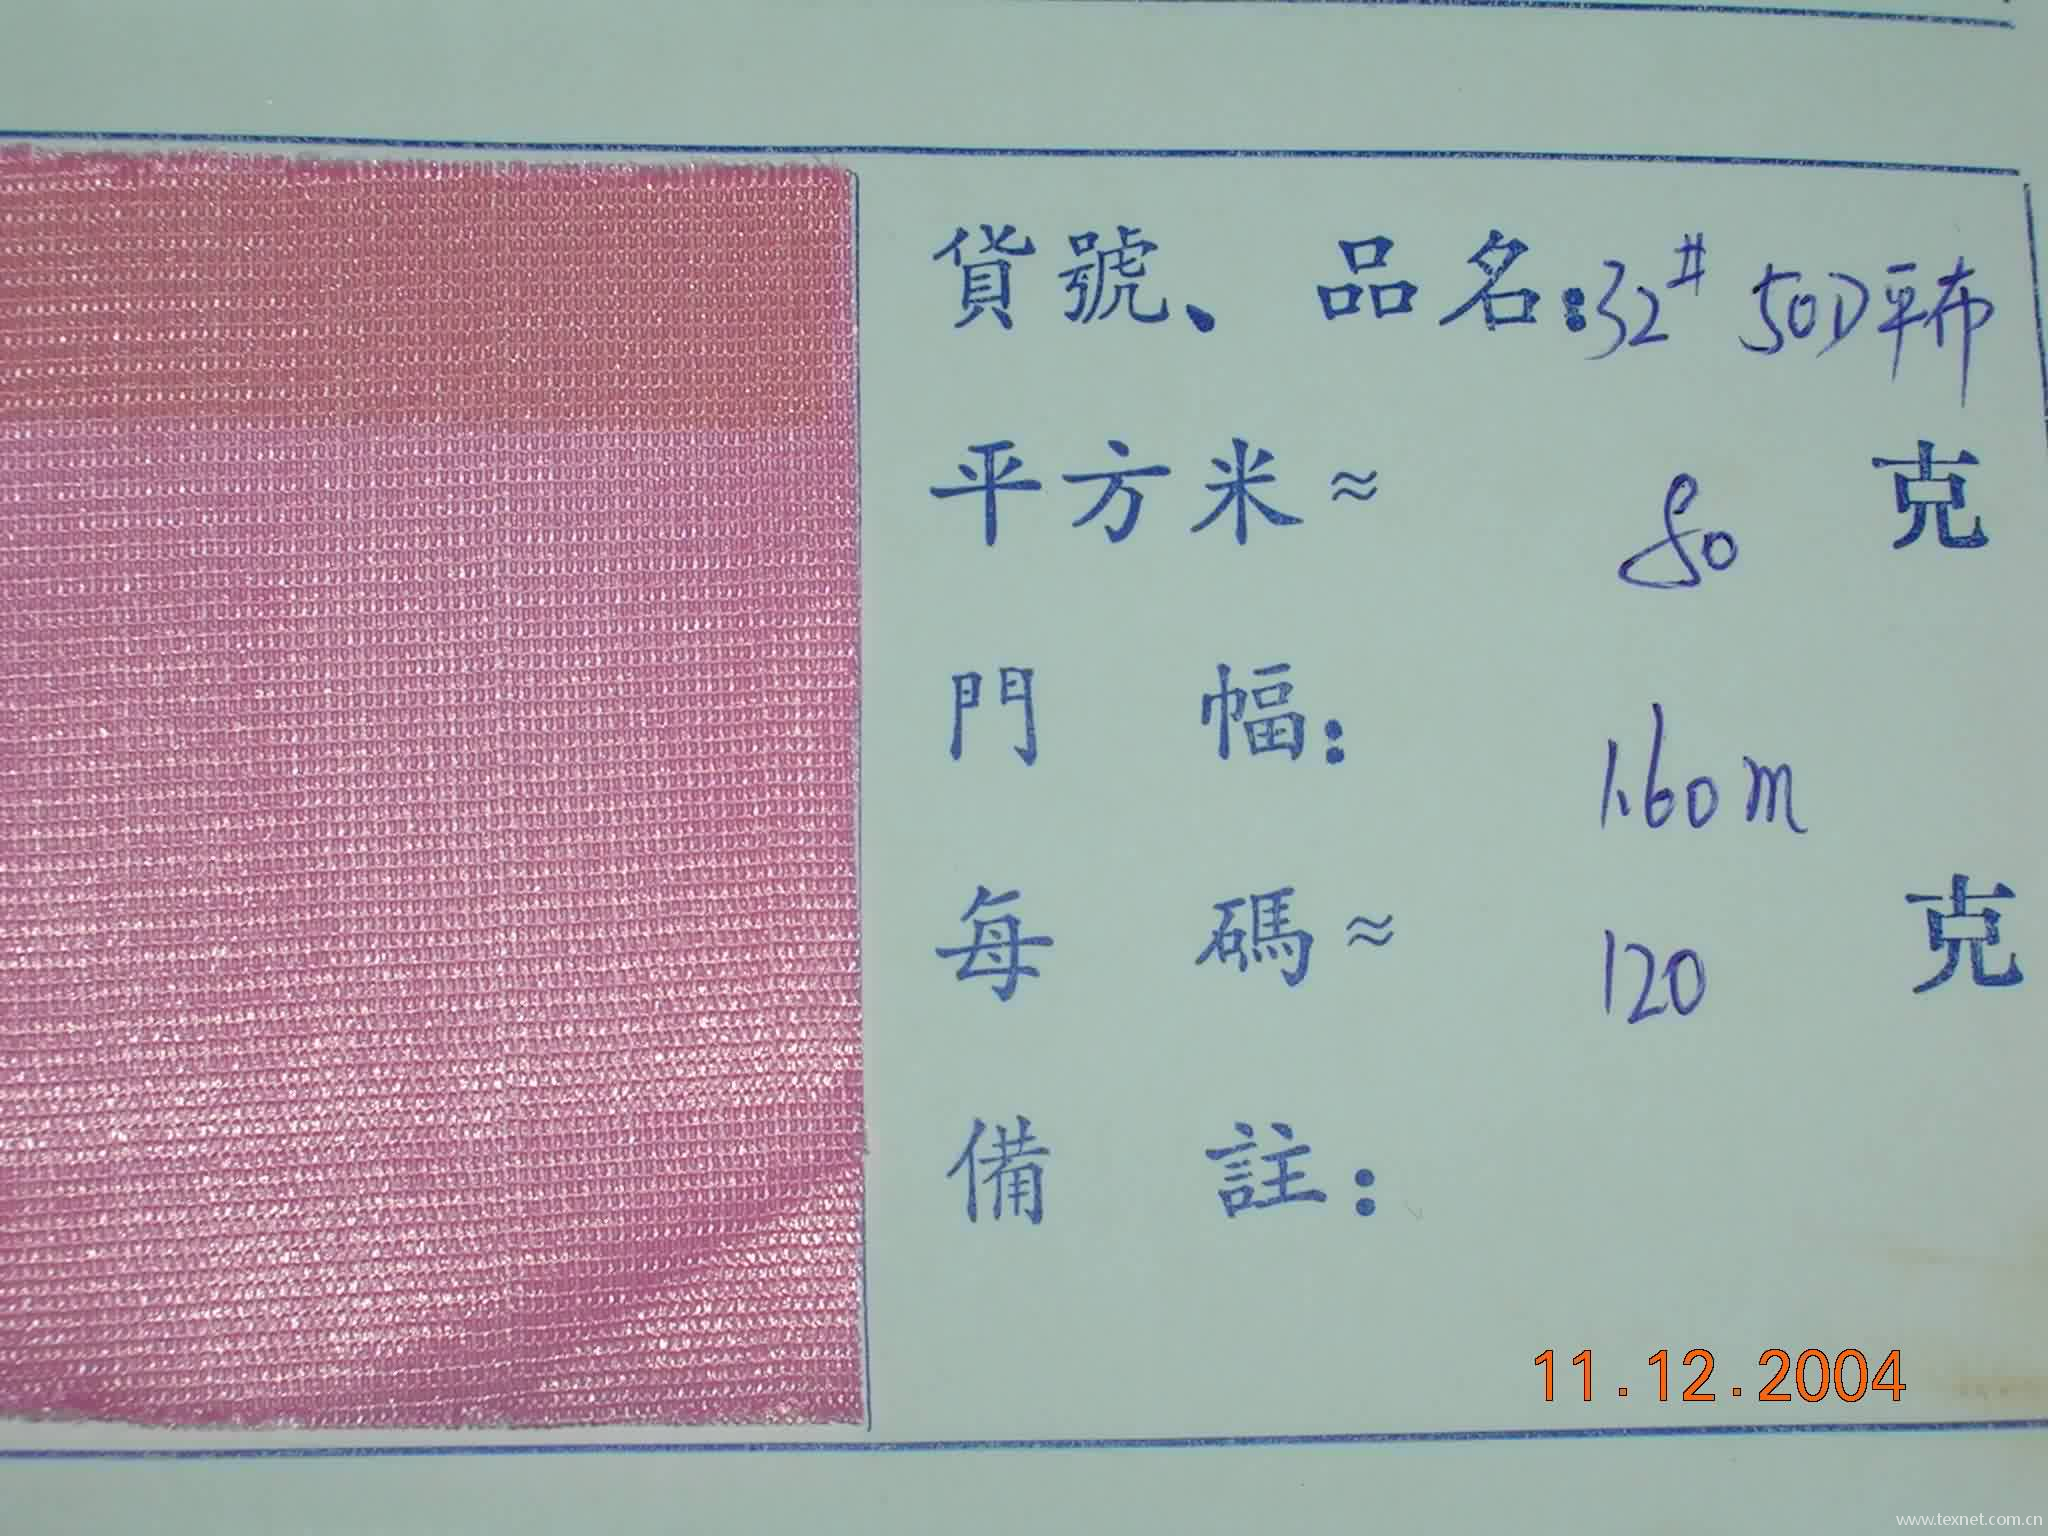 貨號、品名:32# 50D平布
平方米≈ 80 克
門幅: 1.60m
每碼≈ 120 克
備註:
11.12.2004
www.texnet.com.cn